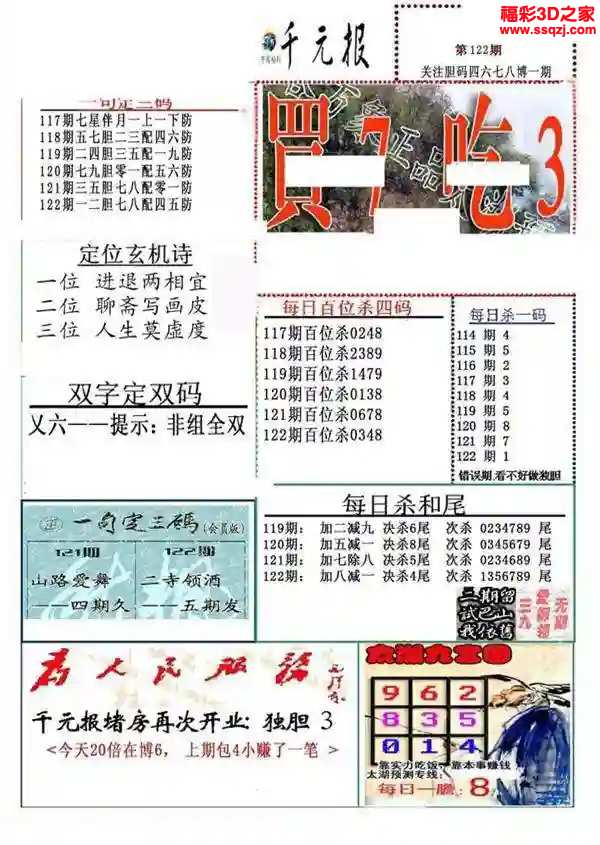 福彩3D之家
www.ssqzj.com
千元报
第122期
关注胆码四六七八博一期
一句定三码
117期七星伴月一上一下防
118期五七胆二三配四六防
119期二四胆三五配一九防
120期七九胆零一配五六防
121期三五胆七八配零一防
122期一二胆七八配四五防
買 7 吃 3
定位玄机诗
一位 进退两相宜
二位 聊斋写画皮
三位 人生莫虚度
每日百位杀四码
117期百位杀0248
118期百位杀2389
119期百位杀1479
120期百位杀0138
121期百位杀0678
122期百位杀0348
每日杀一码
114 期 4
115 期 5
116 期 2
117 期 3
118 期 4
119 期 5
120 期 8
121 期 7
122 期 1
错误期,看不好做独胆
双字定双码
乂六——提示：非组全双
一句定三碼(会员版)
121期
山路爱舞
——四期久
122期
二寺领酒
——五期发
每日杀和尾
119期： 加二减九 决杀6尾 次杀 0234789 尾
120期： 加五减一 决杀8尾 次杀 0345679 尾
121期： 加七除八 决杀5尾 次杀 0234789 尾
122期： 加八减一 决杀4尾 次杀 1356789 尾
三期留
试巴山
我依旧
为人民服务
千元报堵房再次开业：独胆 3
<今天20倍在博6， 上期包4小赚了一笔>
太湖九宫图
9 6 2
8 3 5
0 1 4
靠实力吃饭，靠本事赚钱
太湖预测专线：
每日一胆： 8